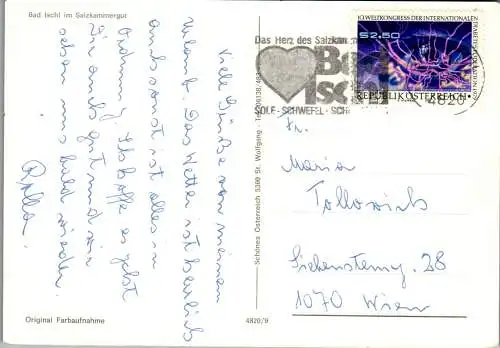 Bad Ischl im Salzkammergut
Viele Grüße von meinem
Urlaub. Das Wetter ist herrlich
auch sonst ist alles in
Ordnung. Ich hoffe es geht
Dir auch gut und wir
sehen uns bald wieder.
Original Farbaufnahme
4820/9
Schönes Österreich 5360 St. Wolfgang
Das Herz des Salzkam
Bad
Ischl
SOLE - SCHWEFEL - SCH
4820
10. WELTKONGRESS DER INTERNATIONALEN
S 2.50
REPUBLIK ÖSTERREICH
Fr.
Maria
Siebensterng. 28
1070 Wien